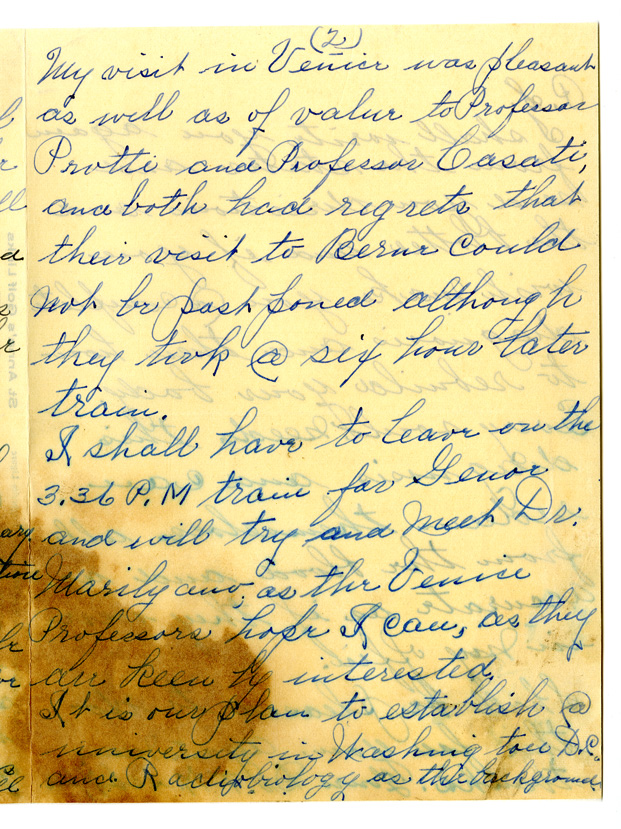 (2)
My visit in Venice was pleasant
as well as of value to Professor
Protti and Professor Casati,
and both had regrets that
their visit to Berne could
not be postponed although
they took @ six hour later
train.
I shall have to leave on the
3.36 P.M train for Genoe
and will try and meet Dr.
as the Venice
Professors hope I can, as they
are keenly interested.
It is our plan to establish @
university in Washington D.C.
and Radiobiology as the background.
St. Ann's Golf Links